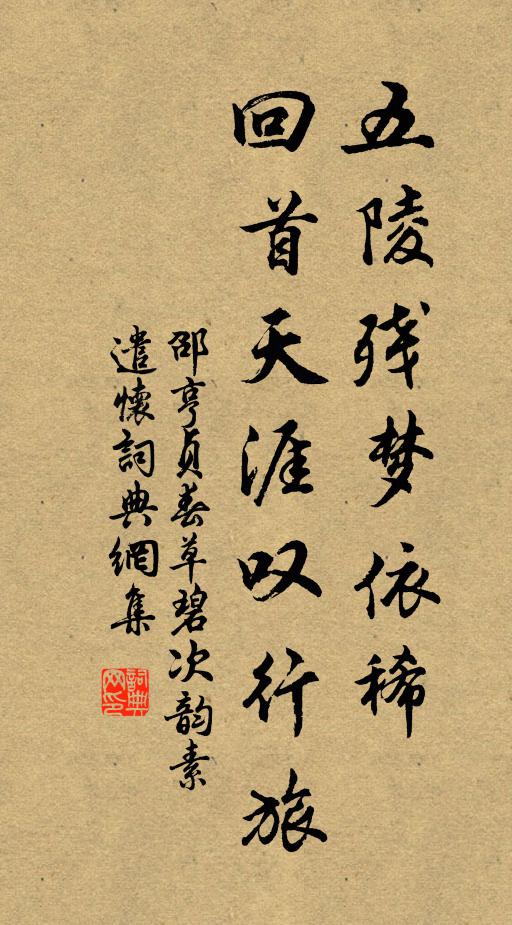 五陵残梦依稀
回首天涯叹行旅
邵亨贞春草碧次韵素
遣懷詞典網集
詞典网印